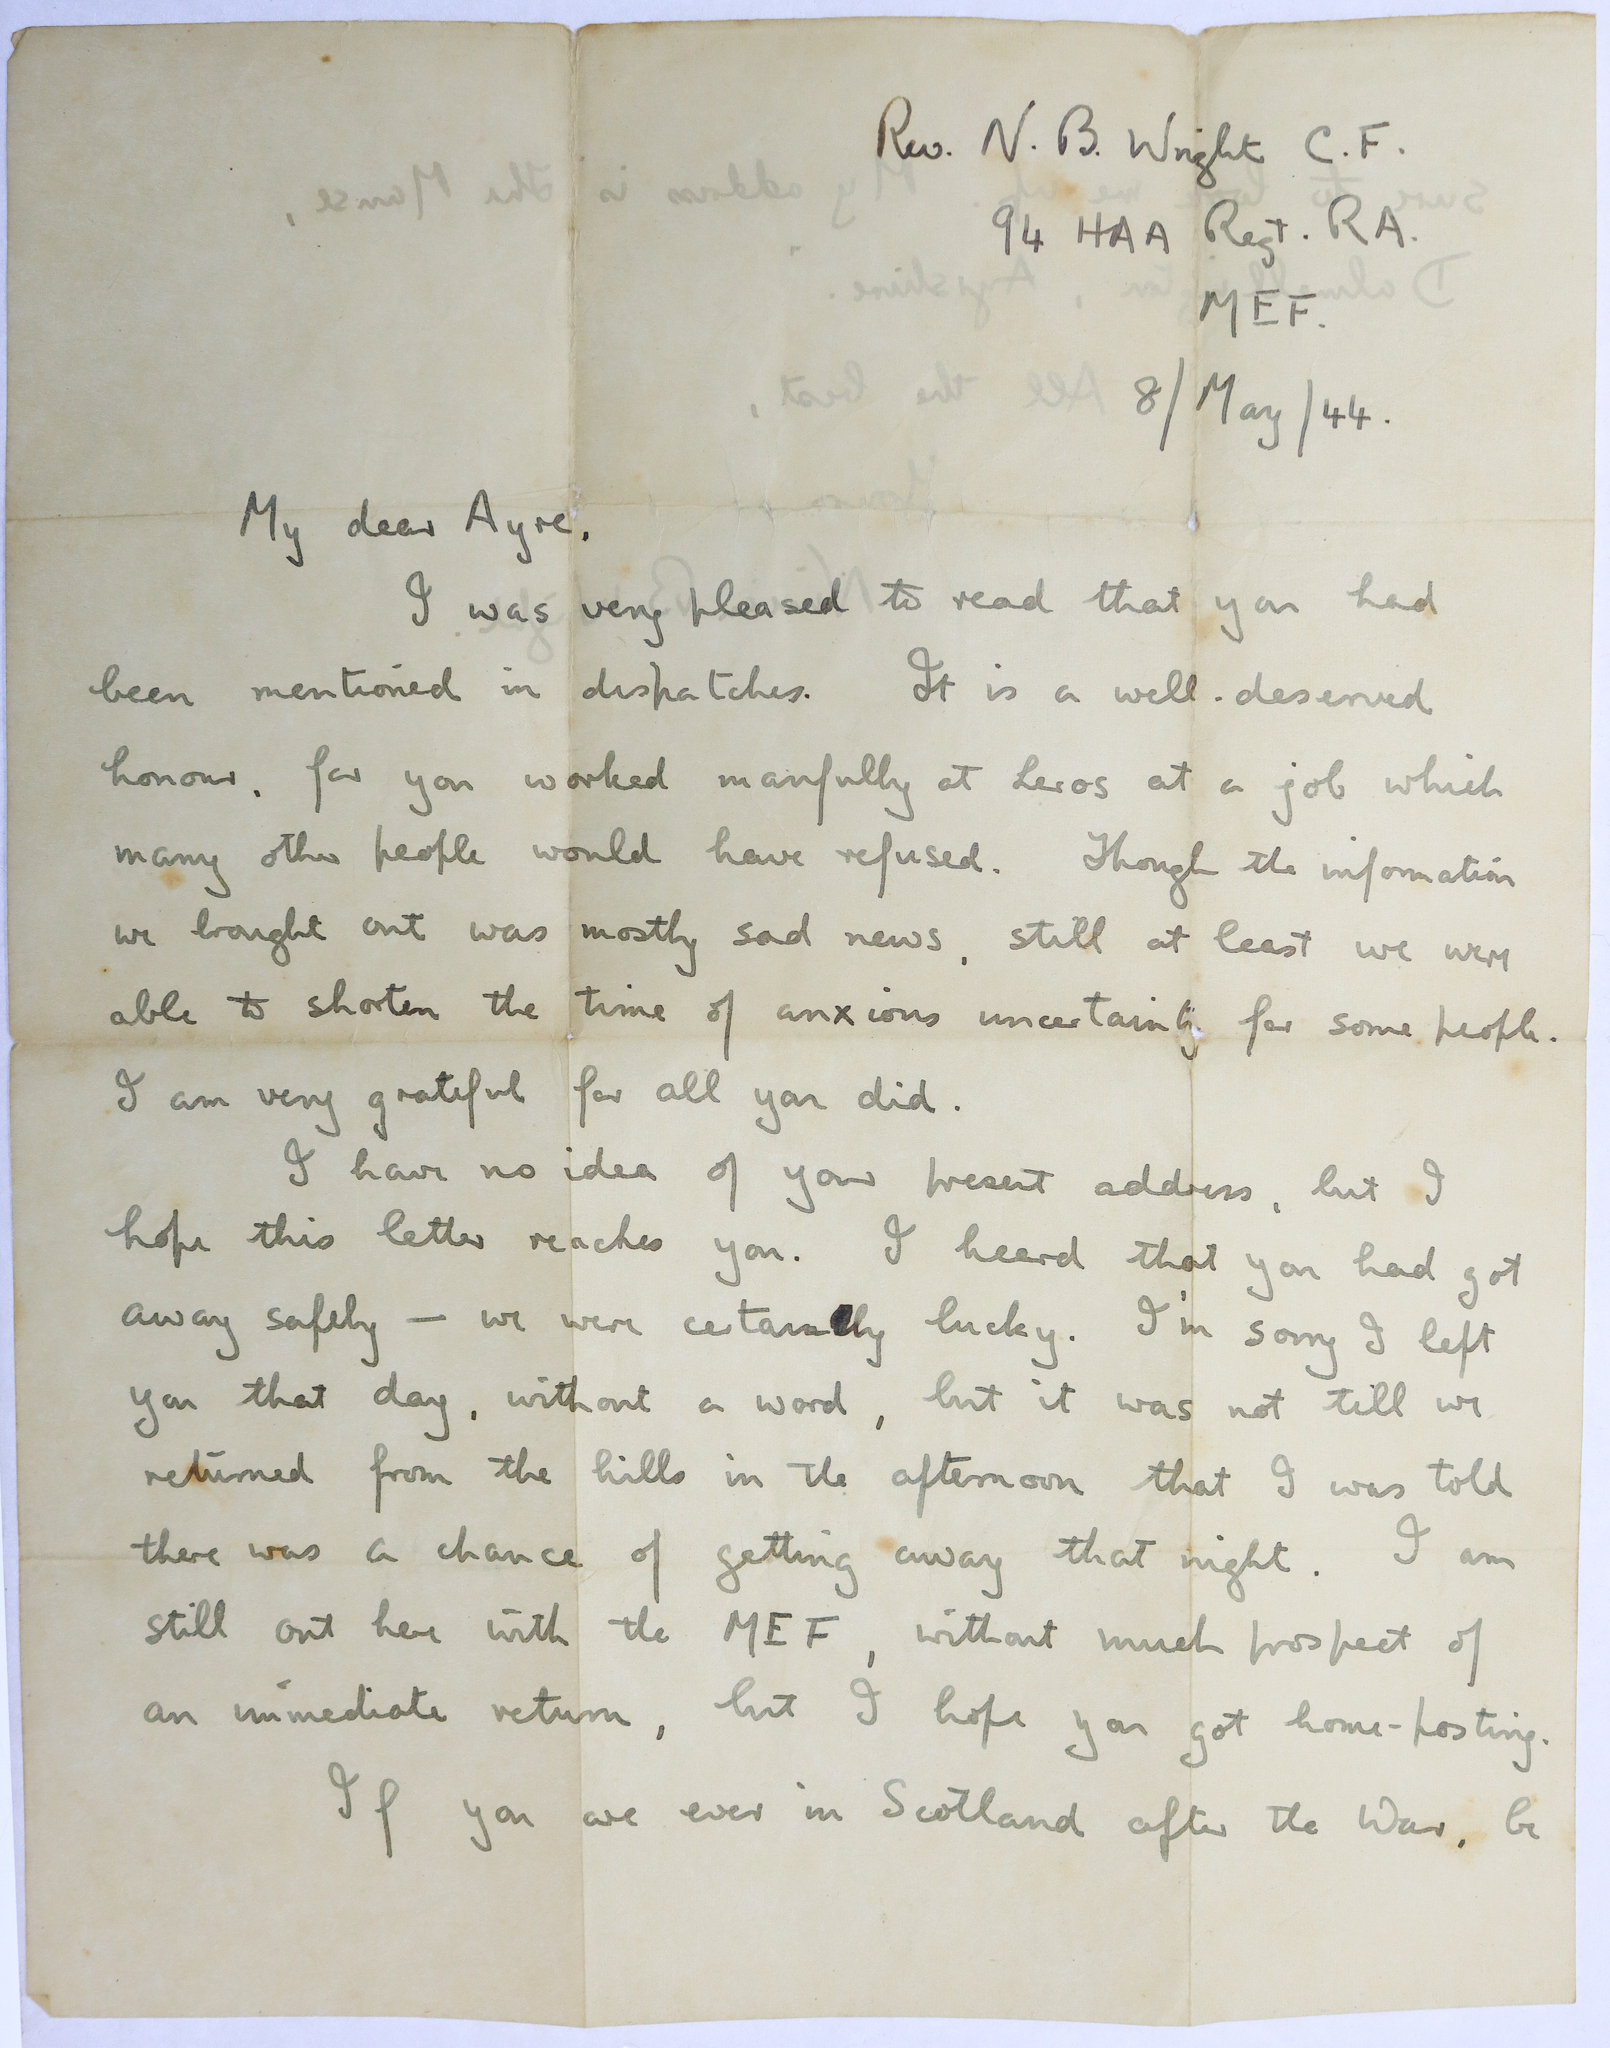 Rev. N. B. Wright C.F.
94 HAA Regt. RA.
MEF.
8/May/44.
My dear Ayre,
I was very pleased to read that you had
been mentioned in dispatches. It is a well-deserved
honour, for you worked manfully at Leros at a job which
many other people would have refused. Though the information
we brought out was mostly sad news, still at least we were
able to shorten the time of anxious uncertainty for some people.
I am very grateful for all you did.
I have no idea of your present address, but I
hope this letter reaches you. I heard that you had got
away safely — we were certainly lucky. I'm sorry I left
you that day, without a word, but it was not till we
returned from the hills in the afternoon that I was told
there was a chance of getting away that night. I am
still out here with the MEF, without much prospect of
an immediate return, but I hope you got home-posting.
If you are ever in Scotland after the War, be